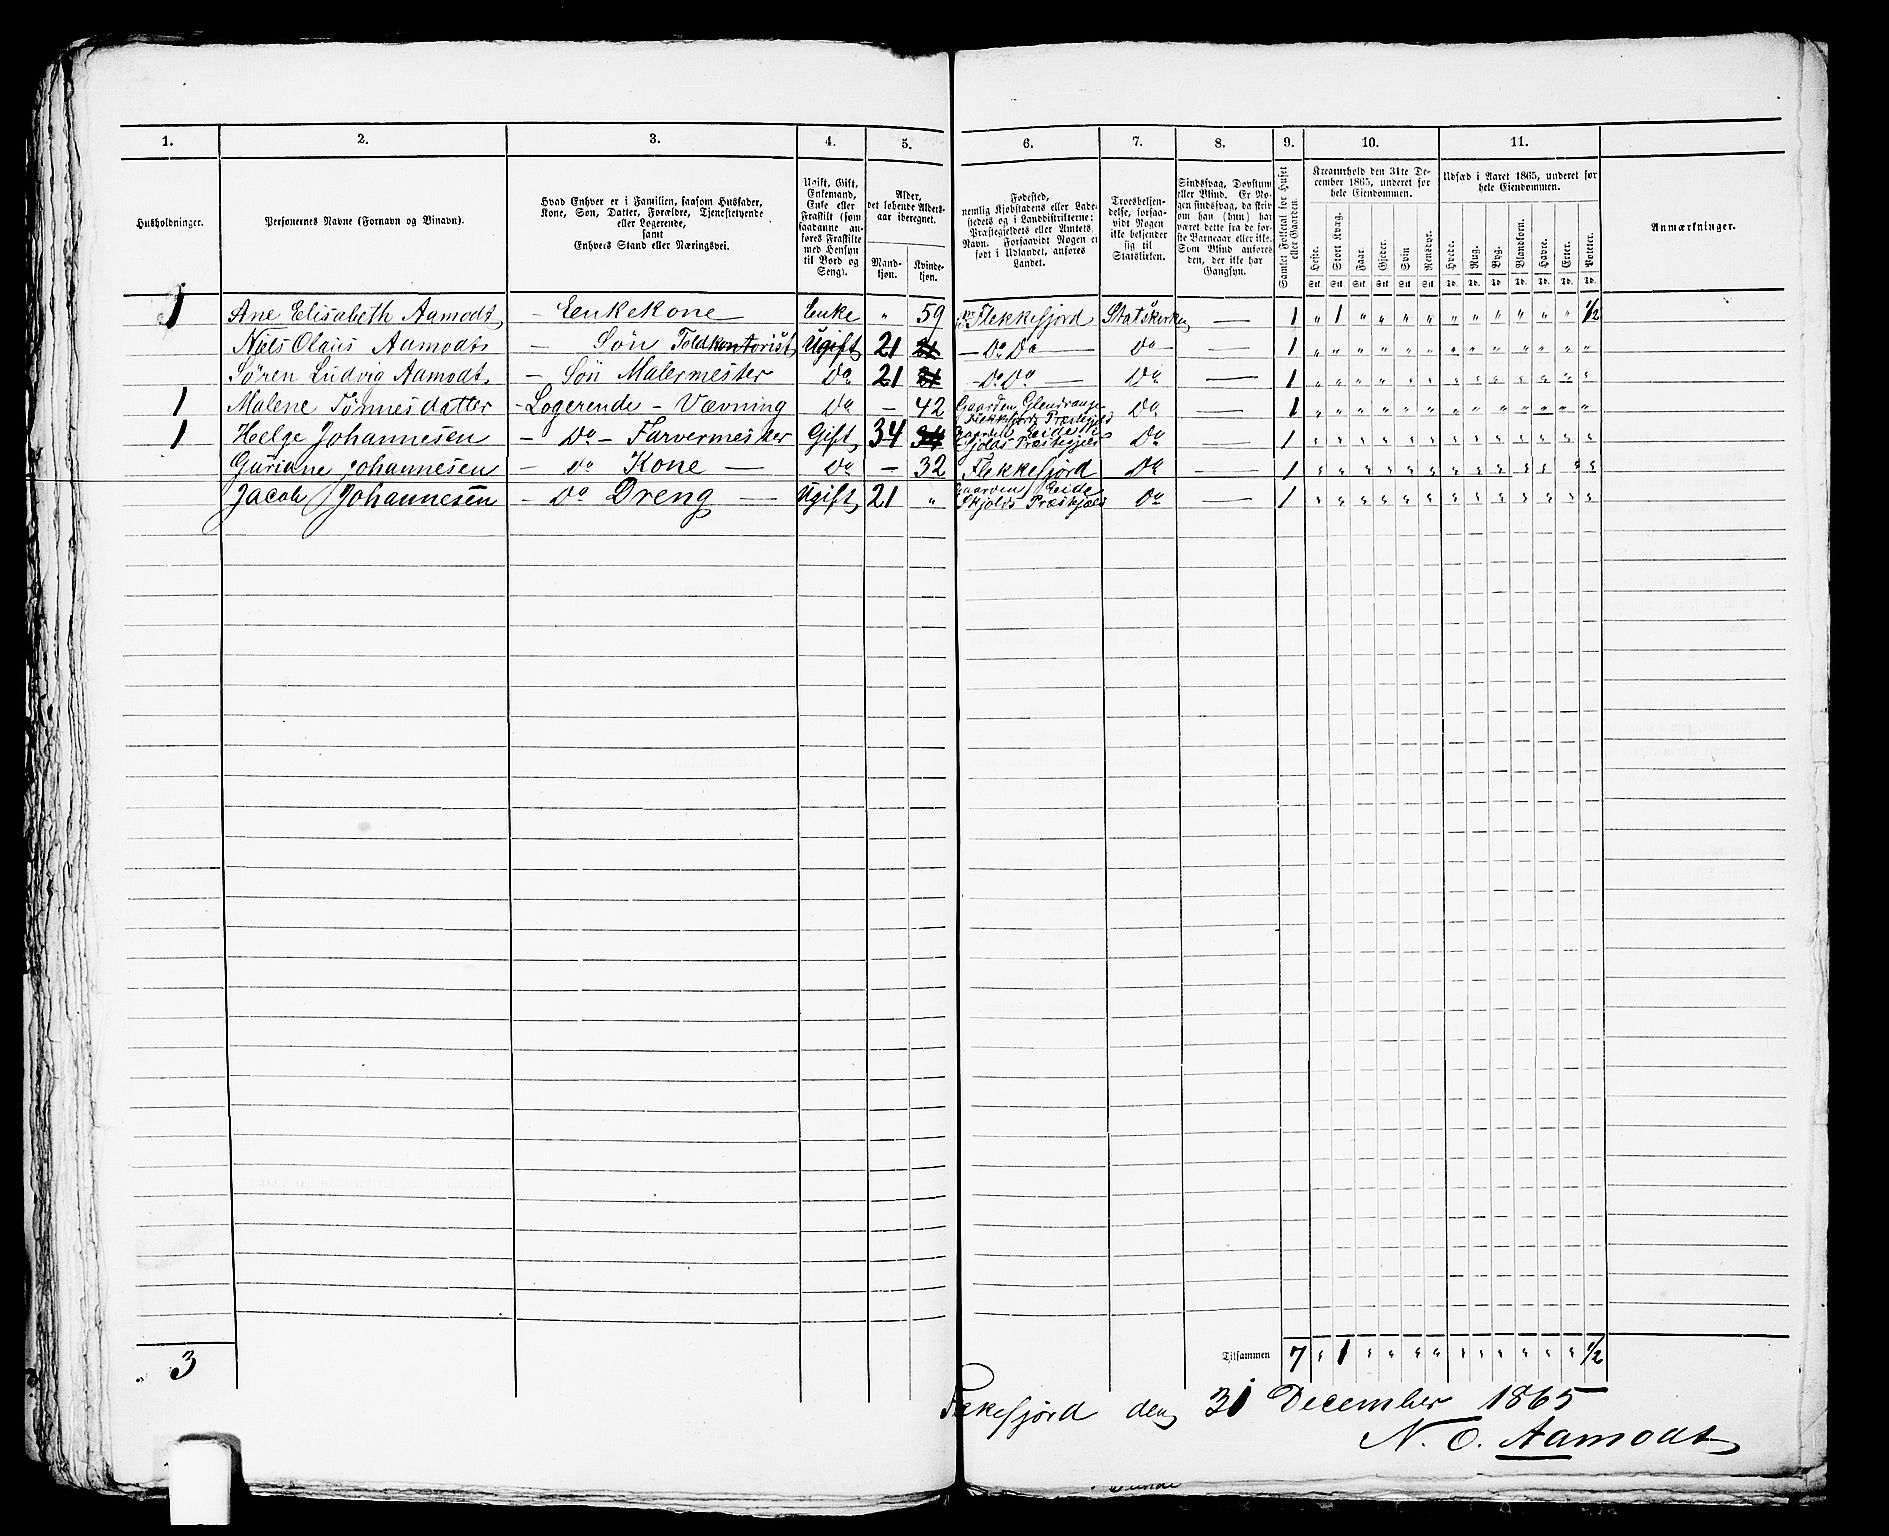 1. 2. 3. 4. 5. 6. 7. 8. 9. 10. 11.
Husholdninger.
Personernes Navne (Fornavn og Binavn).
Hvad Enhver er i Familien, saasom Husfader, Kone, Søn, Datter, Forældre, Tjenestetyende eller Logerende, samt Enhvers Stand eller Næringsvei.
Ugift, Gift, Enkemand, Enke eller Fraskilt (som saadanne anføres Fraskilte med Hensyn til Bord og Seng).
Alder, det løbende Aldersaar iberegnet.
Mandkjøn. Kvindekjøn.
Fødested, nemlig Kjøbstadens eller Ladestedets og i Landdistrikterne: Præstegjeldets eller Amtets Navn. Forsaavidt Nogen er født i Udlandet, anføres Landet.
Troesbekjendelse, forsaavidt Nogen ikke bekjender sig til Statskirken.
Sindssvag, Døvstum eller Blind. Er Nogen sindssvag, da skriv om han (hun) har været dette fra de første Barneaar eller ikke. Som Blind anføres den, der ikke har Gangsyn.
Samlet Folketal for Huset eller Gaarden.
Kreaturhold den 31te December 1865, underet for hele Eiendommen.
Heste. Stort Kvæg. Faar. Gjeder. Svin Rensdyr.
Udsæd i Aaret 1865, underet for hele Eiendommen.
Hvede. Rug. Byg. Blandkorn. Havre. Erter. Poteter.
Anmærkninger.
Stk. Stk. Stk. Stk. Stk. Stk. Td. Td. Td. Td. Td. Td. Td.
1 Ane Elisabeth Aamodt – Enkekone Enke " 59 Flekkefjord Statskirken — 1 " 1 " " " " " " " " " " 1/2
Niels Olaus Aamodt – Søn Toldkontorist Ugift 21 21 – Do Do — Do — 1 " " " " " " " " " " " " "
Søren Ludvig Aamodt – Søn Malermester Do 21 21 – Do Do — Do — 1 " " " " " " " " " " " " "
1 Malene Tønnesdatter – Logerende – Vævning Do – 42 Gaarden Glendrange Flekkefjords Præstegjeld Do — 1 " " " " " " " " " " " " "
1 Helge Johannesen – Do – Farvermester Gift 34 34 Gaarden Eide Skjolds Præstegjeld Do — 1 " " " " " " " " " " " " "
Guriane Johannesen – Do Kone — Do – 32 Flekkefjord Do — 1 " " " " " " " " " " " " "
Jacob Johannesen – Do Dreng — Ugift 21 " Gaarden Eide Skjolds Præstegjeld Do — 1 " " " " " " " " " " " " "
3 Tilsammen 7 " 1 " " " " " " " " " " 1/2
Flekkefjord den 31 December 1865
N. O. Aamodt